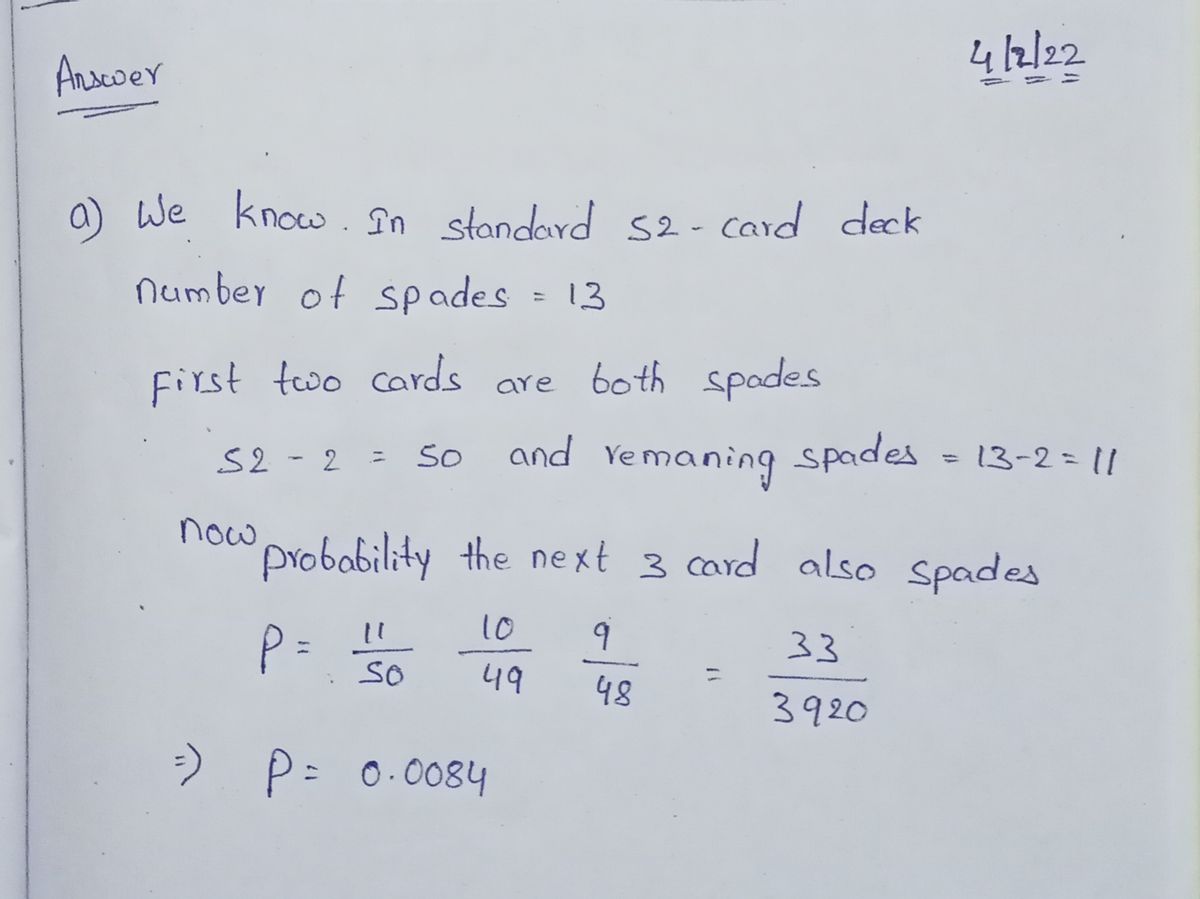 Answer
4/2/22
a) We know. In standard 52-card deck
number of spades = 13
First two cards are both spades
52 - 2 = 50 and remaning spades = 13-2 = 11
now probability the next 3 card also spades
P = 11/50 10/49 9/48 = 33/3920
=) P = 0.0084